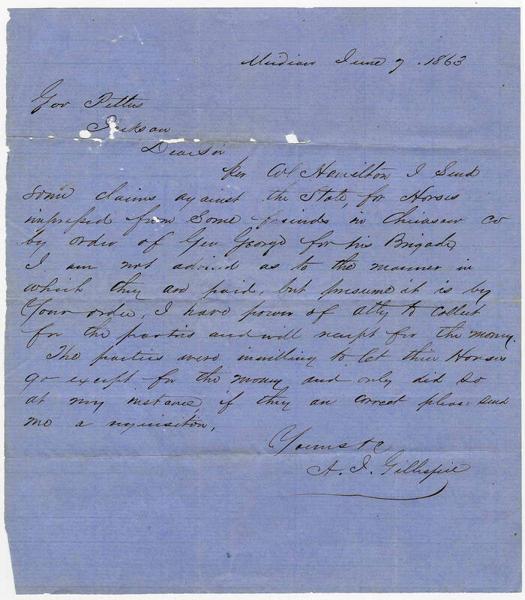 Meridian June 7. 1863
Gov Pettus
Jackson
Dear Sir
Per Col Hamilton I Send
some claims against the State, for Horses
impressed from Some friends in Chicasaw Co
by order of Gen George for his Brigade,
I am not advised as to the manner in
which they are paid, but presume it is by
Your order, I have power of atty to collect
for the parties and will receipt for the money.
The parties were unwilling to let their Horses
go except for the money and only did so
at my instance if they are correct please send
me a requisition,
Yours &c
A. J. Gillespie